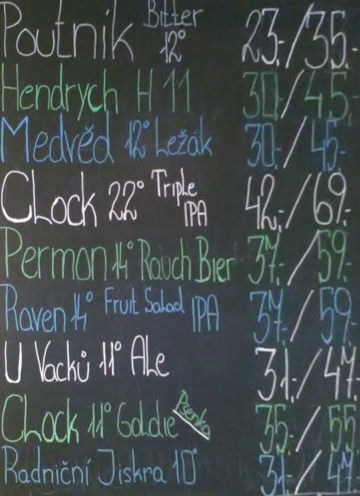 Poutník Bitter 12° 23,-/35,-
Hendrych H 11 30,-/45,-
Medvěd 12° Ležák 30,-/45,-
CLock 22° Triple IPA 42,-/69,-
Permon 14° Rauch Bier 37,-/59,-
Raven 14° Fruit Salad IPA 37,-/59,-
U Vacků 11° Ale 31,-/47,-
CLock 11° Goldie Pšenko 35,-/55,-
Radniční Jiskra 10° 31,-/47,-